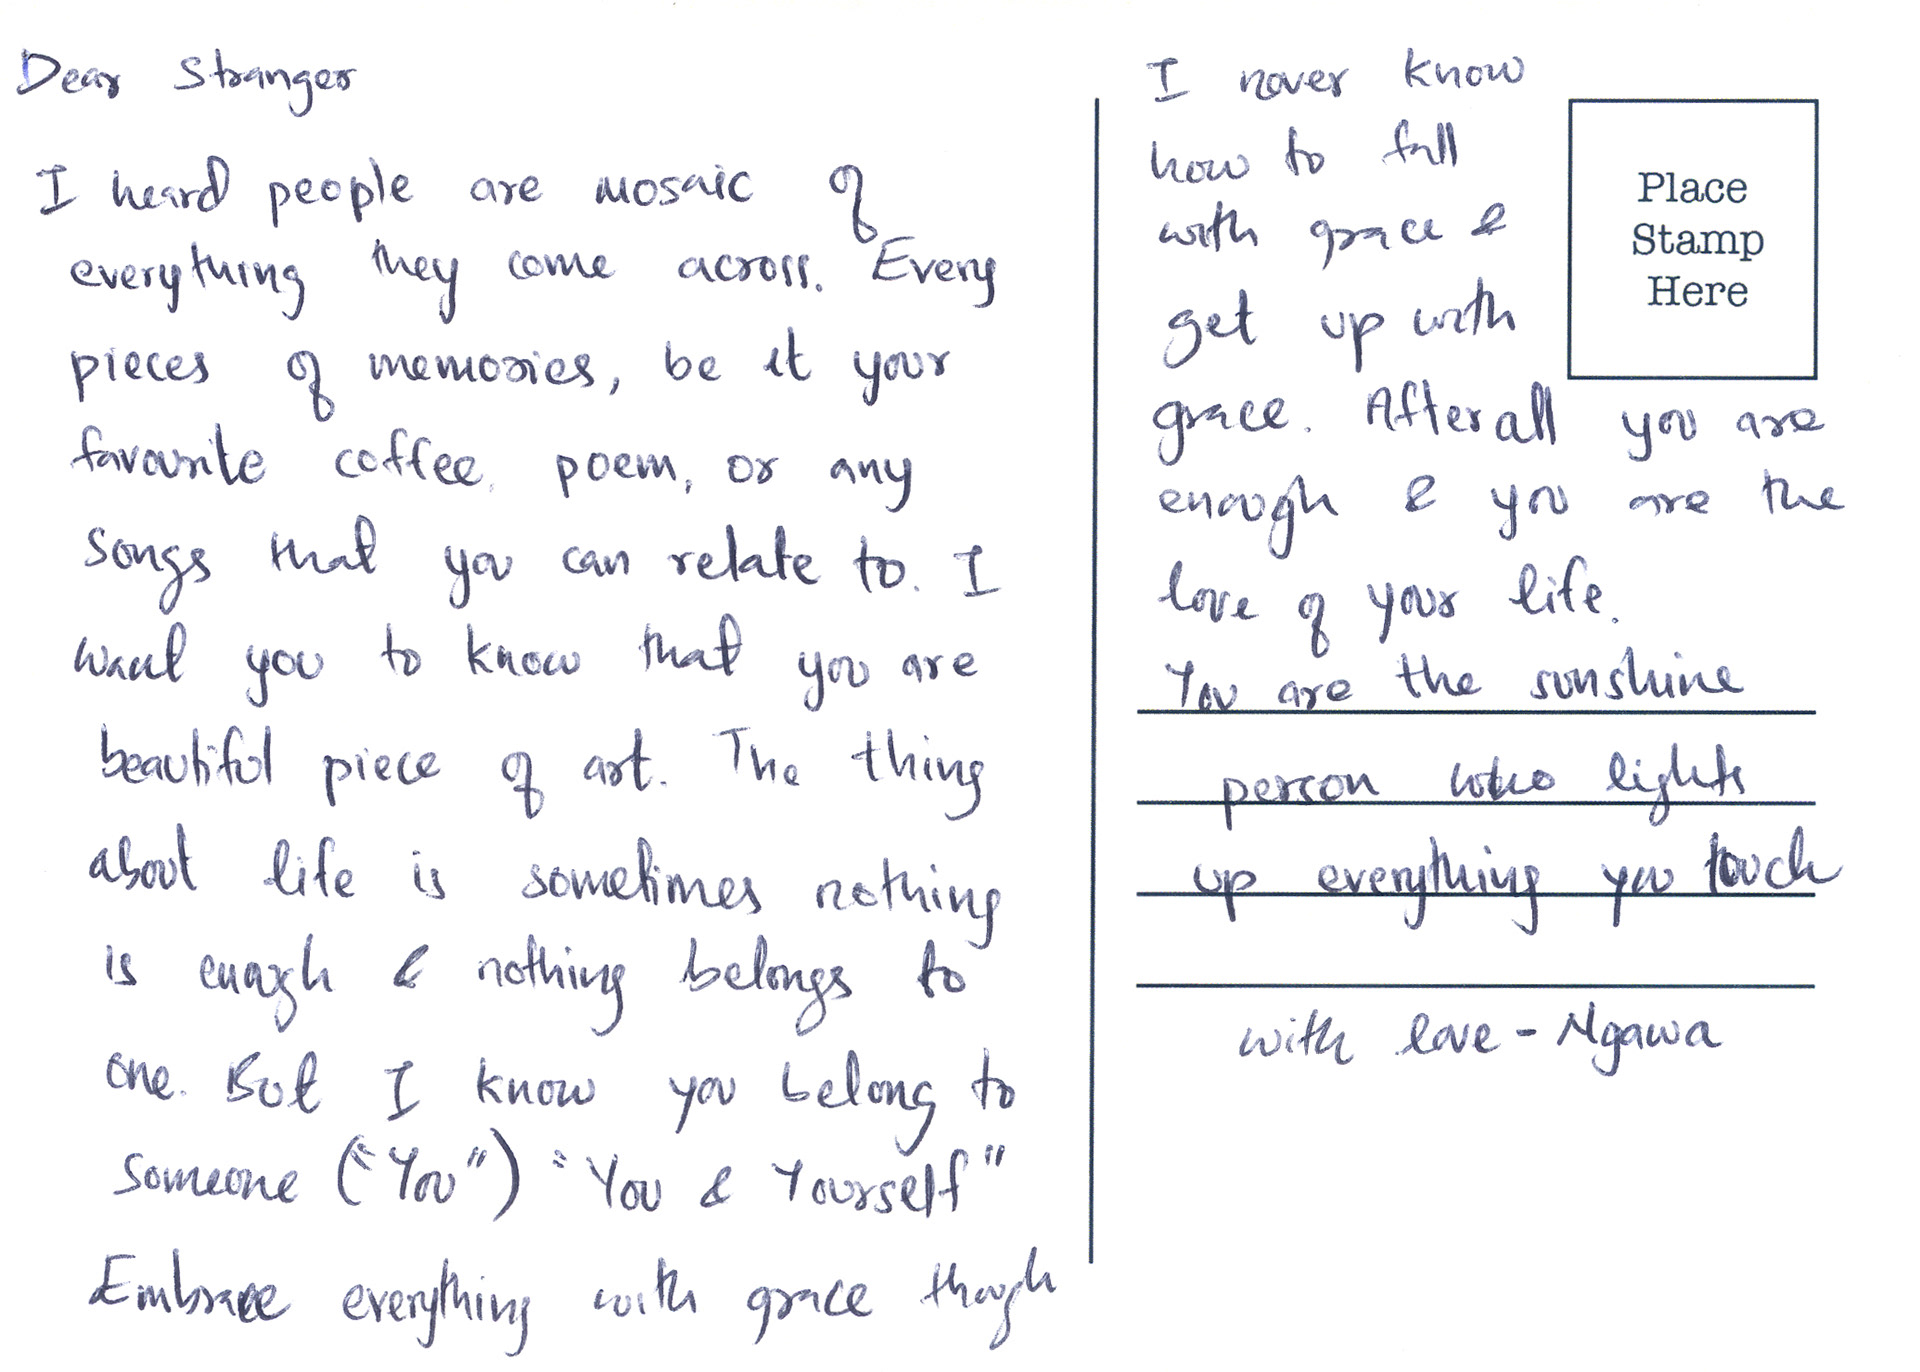 Dear Stranger
I heard people are mosaic of
everything they come across. Every
pieces of memories, be it your
favourite coffee, poem, or any
songs that you can relate to. I
want you to know that you are
beautiful piece of art. The thing
about life is sometimes nothing
is enough & nothing belongs to
one. But I know you belong to
someone ("You") "You & Yourself"
Embrace everything with grace though
I never know
how to fall
with grace &
get up with
grace. After all you are
enough & you are the
love of your life.
You are the sunshine
person who lights
up everything you touch
with love - Ngawa
Place
Stamp
Here